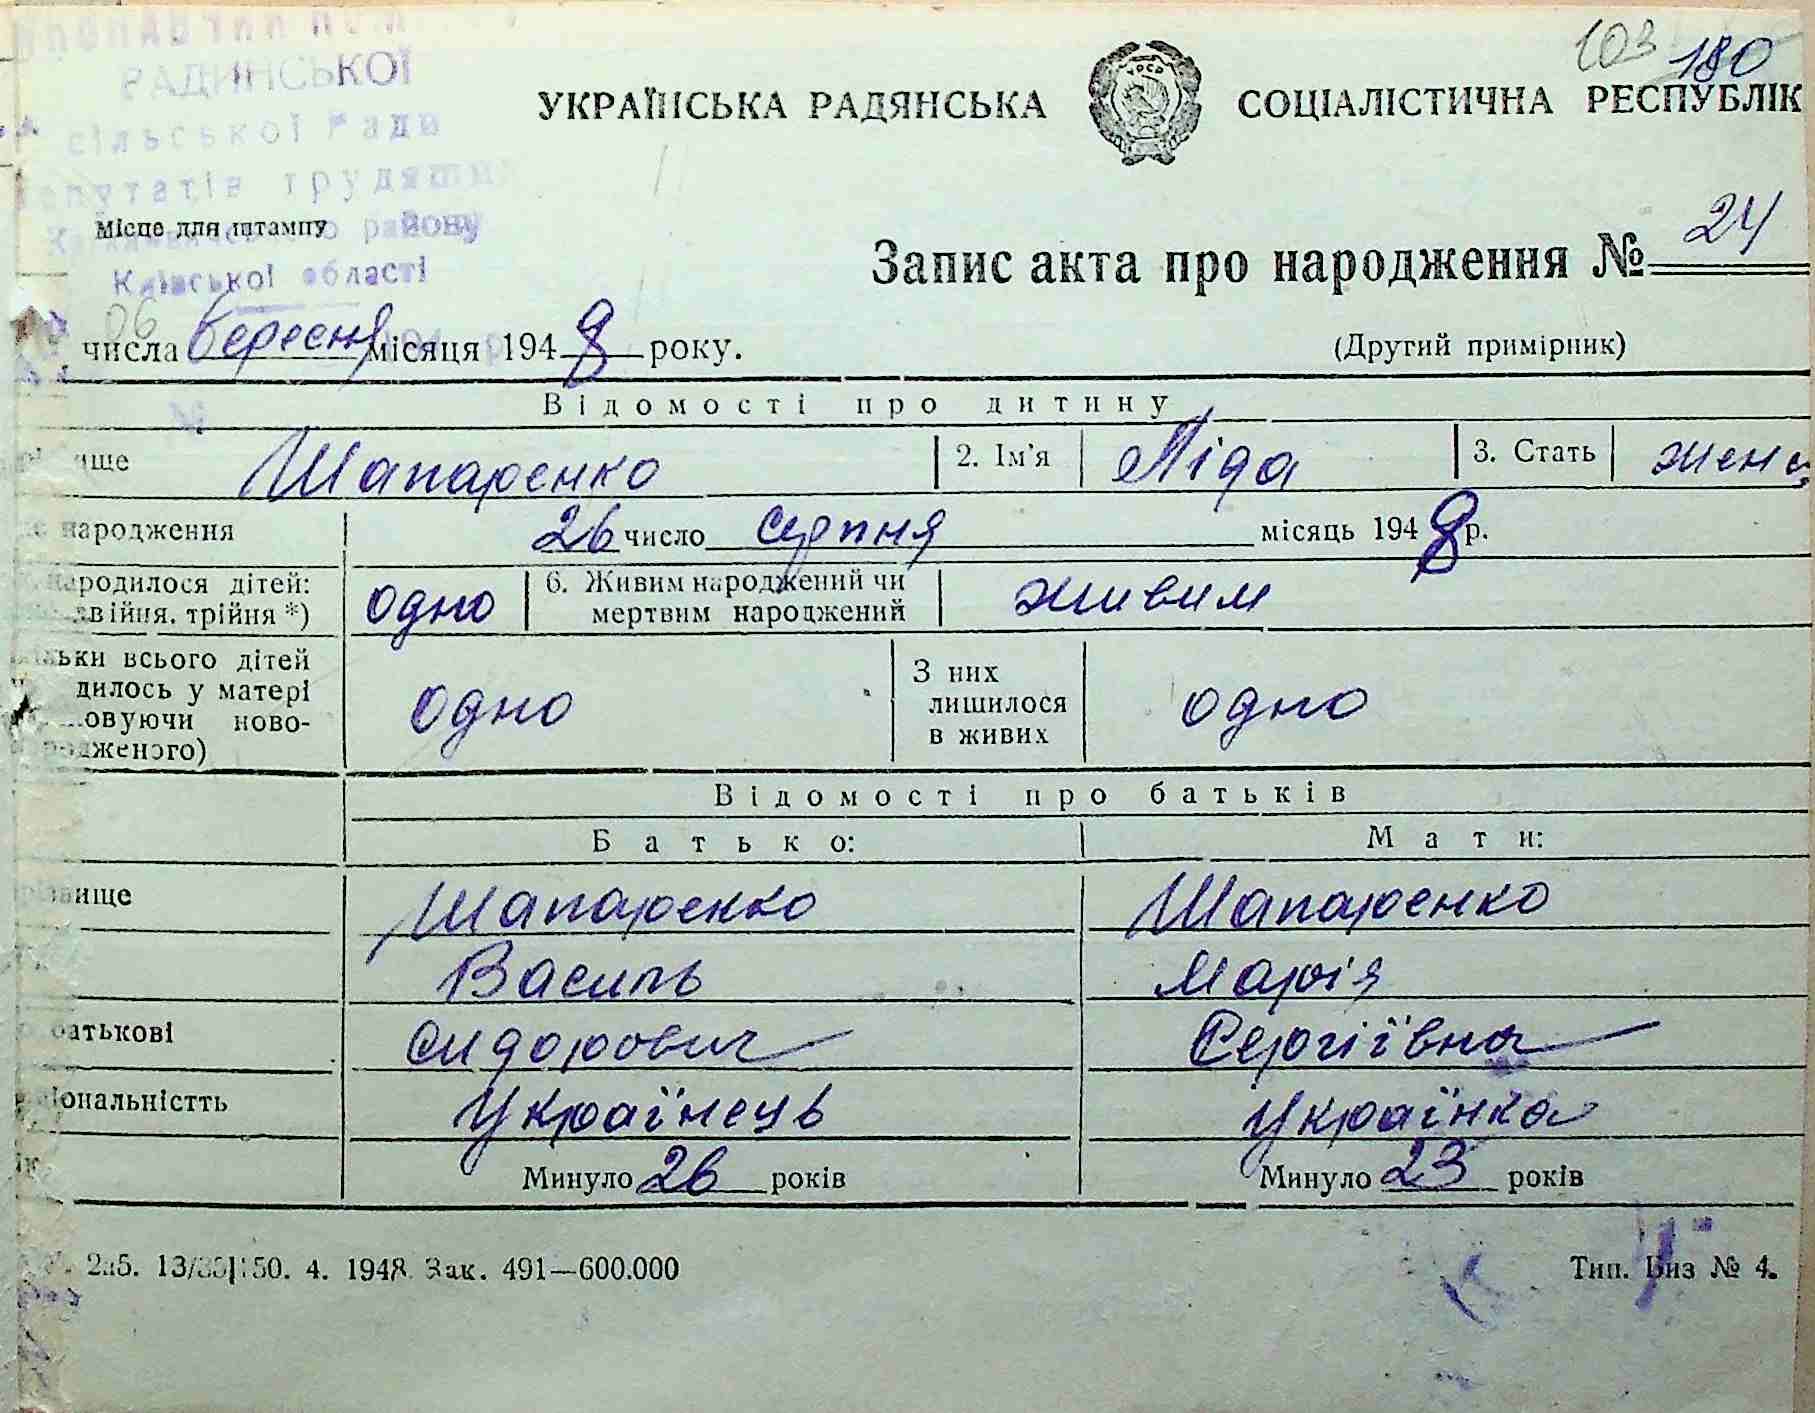 103 180
РАДИНСЬКОЇ
сільської Ради
трудящих
району
Київської області
Місце для штампу
УКРАЇНСЬКА РАДЯНСЬКА СОЦІАЛІСТИЧНА РЕСПУБЛІК
Запис акта про народження № 24
(Другий примірник)
06 числа вересня місяця 1948 року.
Відомості про дитину
ище Шапаренко 2. Ім'я Ліда 3. Стать жен
народження 26 число серпня місяць 1948 р.
народилося дітей: двійня, трійня *) одно 6. Живим народжений чи мертвим народжений живим
льки всього дітей
дилось у матері
овуючи ново-
дженого) одно З них лишилося в живих одно
Відомості про батьків
Батько: Мати:
ище Шапаренко Шапаренко
Василь Марія
батькові Сидорович Сергіївна
іональністть Українець українка
Минуло 26 років Минуло 23 років
1948 Зак. 491—600.000 Тип. № 4.